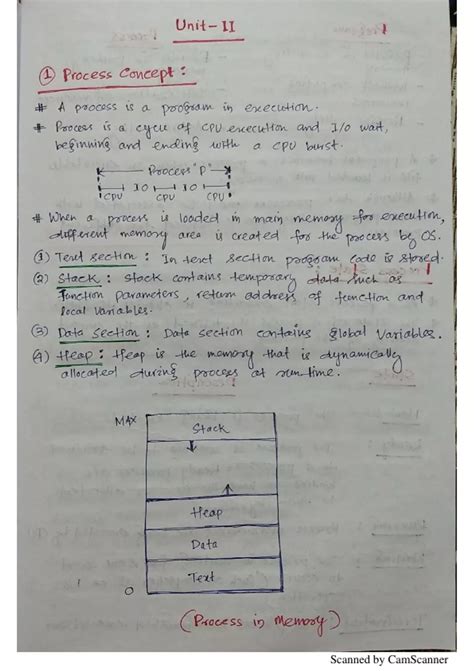 Unit-II
① Process Concept :
# A process is a program in execution.
# Process is a cycle of CPU execution and I/O wait,
beginning and ending with a CPU burst.
Process "P"
CPU IO CPU IO CPU
# When a process is loaded in main memory for execution,
different memory area is created for the process by OS.
(1) Text section : In text section program code is stored.
(2) Stack : Stack contains temporary data such as
function parameters, return address of function and
local variables.
(3) Data section : Data section contains global variables.
(4) Heap : Heap is the memory that is dynamically
allocated during process at run time.
MAX
Stack
Heap
Data
Text
0
(Process in memory)
Scanned by CamScanner